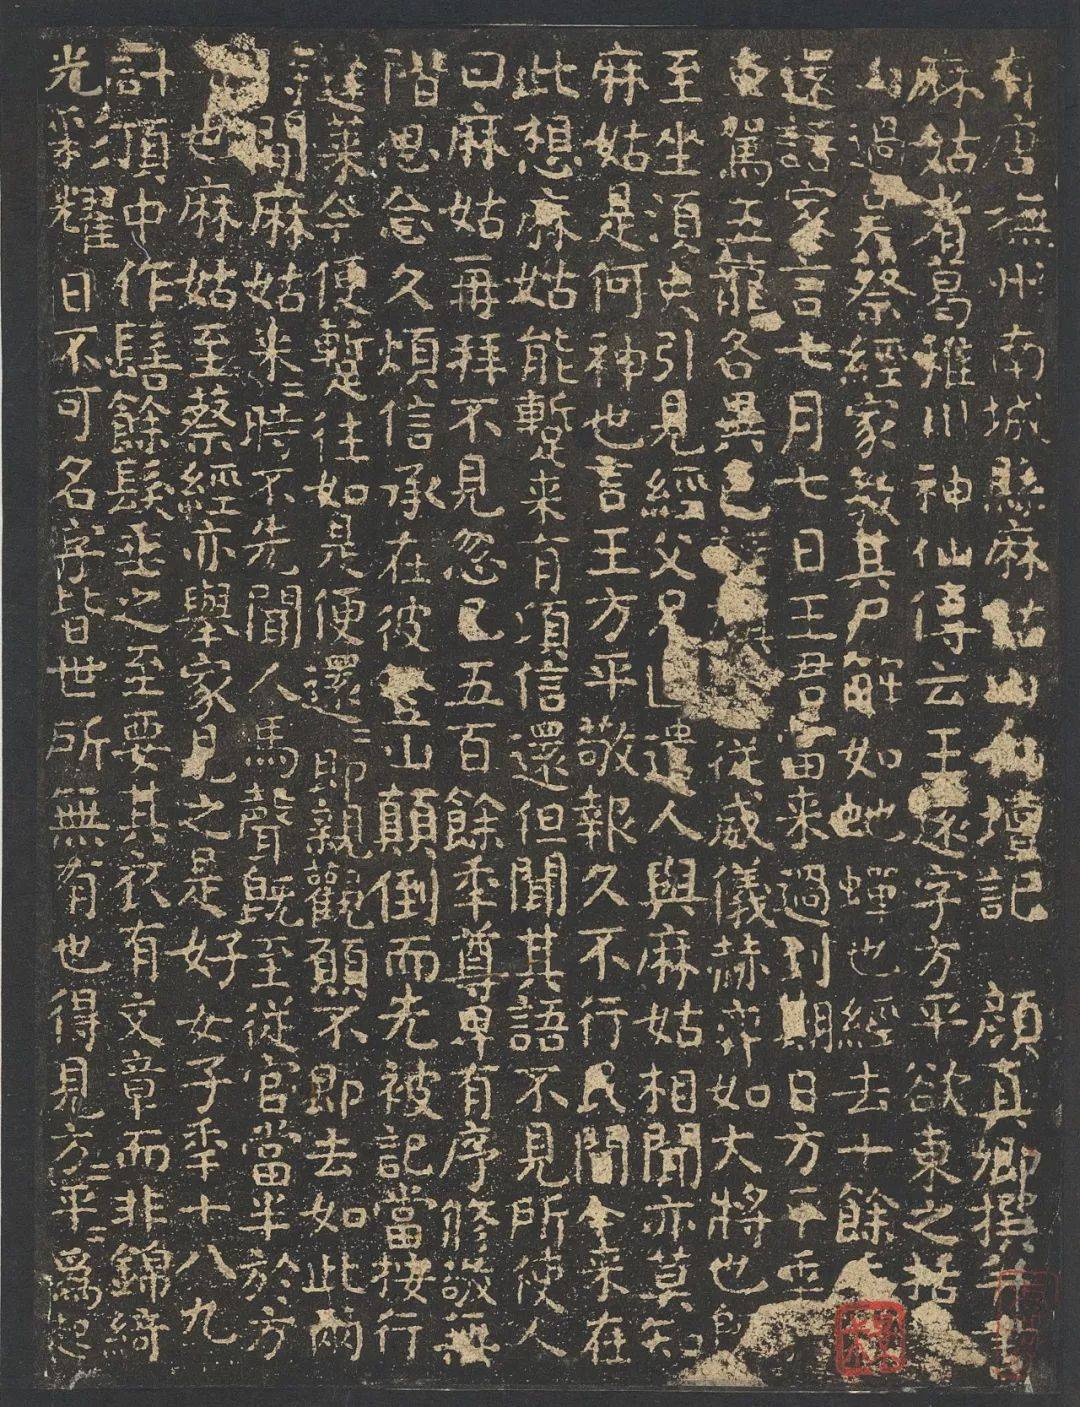 有唐撫州南城縣麻姑山仙壇記 顏真卿撰并書
麻姑者葛稚川神仙傳云王遠字方平欲東之括
山過吳蔡經家教其尸解如虵蟬也經去十餘
還語家言七月七日王君當来過到期日方平乘
車駕五龍各異色旌旗導從威儀赫弈如大將也
至坐須臾引見經父兄因遣人與麻姑相聞亦莫知
麻姑是何神也言王方平敬報久不行民間今来在
此想麻姑能蹔来有頃信還但聞其語不見所使人
曰麻姑再拜不見忽已五百餘年尊卑有序修敬無
階思念久煩信承在彼登山顛倒而先被記當按行
蓬萊今便蹔往如是便還還即親觀願不即去如此兩
時間麻姑来来時不先聞人馬聲既至從官當半於方
也麻姑至蔡經亦舉家見之是好女子年十八九
計頂中作髻餘髮垂之至要其衣有文章而非錦綺
光彩耀日不可名字皆世所無有也得見方平方平為起